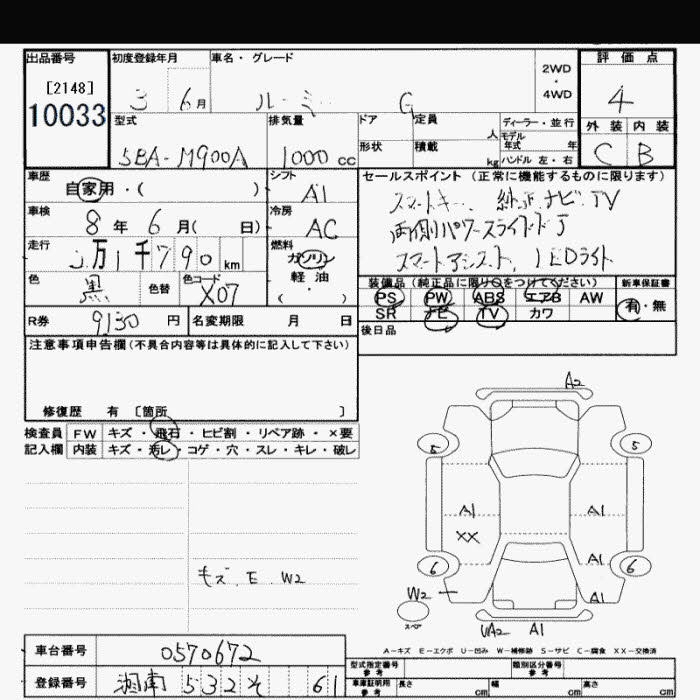 出品番号 初度登録年月 車名・グレード 2WD・4WD 評価点
[2148]
10033
3 6月 ルーミー G 4
型式 排気量 ドア 定員 人 ディーラー・並行 外装 内装
5BA-M900A 1000cc 形状 積載 kg モデル年式 年 C B
ハンドル 左・右
車歴 シフト セールスポイント(正常に機能するものに限ります)
自家用・( ) AI スマートキー、純正ナビ・TV
車検 冷房 両側パワースライドドア
8年 6月( 日) AC スマートアシスト、LEDライト
走行 燃料
万1千790km ガソリン
軽油
( )
色 色替 色コード 装備品(純正品に限り○をつけてください) 新車保証書
黒 X07 PS PW ABS エアB AW 有・無
SR ナビ TV カワ
R券 9130円 名変期限 月 日 後日品
注意事項申告欄(不具合内容等は具体的に記入して下さい)
修復歴 有 〔箇所 〕
検査員 FW キズ・飛石・ヒビ割・リペア跡・×要
記入欄 内装 キズ・汚レ・コゲ・穴・スレ・キレ・破レ
キズ、E、W2
A2
5 5
A1 A1
XX
A1
6 6
W2 A1
スペア
UA2 A1
A-キズ E-エクボ U-凹み W-補修跡 S-サビ C-腐食 XX-交換済
車台番号 0570672
登録番号 湘南 532 そ 61
型式指定番号 参考 類別区分番号 参考
車庫証明用 参考 長さ cm 幅 cm 高さ cm